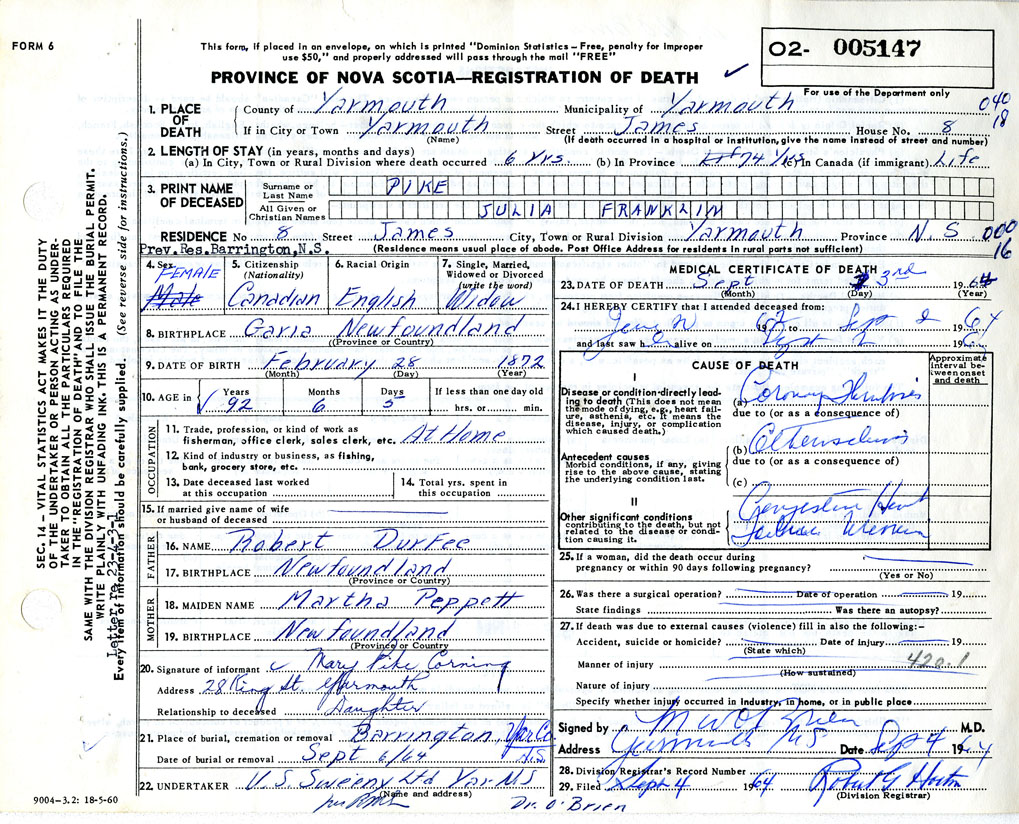 FORM 6
This form, if placed in an envelope, on which is printed "Dominion Statistics – Free, penalty for improper
use $50," and properly addressed will pass through the mail "FREE"
PROVINCE OF NOVA SCOTIA—REGISTRATION OF DEATH
02- 005147
For use of the Department only
040
18
1. PLACE OF DEATH
County of Yarmouth Municipality of Yarmouth
If in City or Town Yarmouth Street James House No. 8
(Name) (If death occurred in a hospital or institution, give the name instead of street and number)
2. LENGTH OF STAY (in years, months and days)
(a) In City, Town or Rural Division where death occurred 6 Yrs. (b) In Province 74 Yrs (c) In Canada (if immigrant) Life
3. PRINT NAME OF DECEASED
Surname or Last Name PIKE
All Given or Christian Names JULIA FRANKLIN
RESIDENCE No 8 Street James City, Town or Rural Division Yarmouth Province N.S 000
16
Prev.Res.Barrington,N.S. (Residence means usual place of abode. Post Office Address for residents in rural parts not sufficient)
4. Sex FEMALE Male
5. Citizenship (Nationality) Canadian
6. Racial Origin English
7. Single, Married, Widowed or Divorced (write the word) Widow
8. BIRTHPLACE Garia Newfoundland
(Province or Country)
9. DATE OF BIRTH February 28 1872
(Month) (Day) (Year)
10. AGE in Years 92 Months 6 Days 5 If less than one day old
hrs. or min.
OCCUPATION
11. Trade, profession, or kind of work as
fisherman, office clerk, sales clerk, etc. At Home
12. Kind of industry or business, as fishing,
bank, grocery store, etc.
13. Date deceased last worked
at this occupation
14. Total yrs. spent in
this occupation
15. If married give name of wife
or husband of deceased
FATHER
16. NAME Robert Durfee
17. BIRTHPLACE Newfoundland
(Province or Country)
MOTHER
18. MAIDEN NAME Martha Peppett
19. BIRTHPLACE Newfoundland
(Province or Country
20. Signature of informant Mary Pike Corning
Address 28 King St. Yarmouth
Relationship to deceased Daughter
21. Place of burial, cremation or removal Barrington, Yar Co N.S.
Date of burial or removal Sept 6/64
22. UNDERTAKER V.S. Sweeny Ltd Yar NS
(Name and address)
per
Dr. O'Brien
9004–3.2: 18-5-60
MEDICAL CERTIFICATE OF DEATH
23. DATE OF DEATH Sept 3rd 1964
(Month) (Day) (Year)
24. I HEREBY CERTIFY that I attended deceased from:
19 to Sept 2 1964
and last saw h alive on 19
CAUSE OF DEATH
Approximate interval between onset and death
I
Disease or condition directly leading to death (This does not mean the mode of dying, e.g., heart failure, asthenia, etc. It means the disease, injury, or complication which caused death.)
(a) Coronary Thrombosis
due to (or as a consequence of)
Antecedent causes
Morbid conditions, if any, giving rise to the above cause, stating the underlying condition last.
(b)
due to (or as a consequence of)
(c)
II
Other significant conditions contributing to the death, but not related to the disease or condition causing it.
Congestive Heart
Failure
25. If a woman, did the death occur during
pregnancy or within 90 days following pregnancy?
(Yes or No)
26. Was there a surgical operation? Date of operation 19
State findings Was there an autopsy?
27. If death was due to external causes (violence) fill in also the following:–
Accident, suicide or homicide? Date of injury 19
(State which)
Manner of injury 420.1
(How sustained)
Nature of injury
Specify whether injury occurred in industry, in home, or in public place
Signed by M W O'Brien M.D.
Address Yarmouth NS Date Sep 4 1964
28. Division Registrar's Record Number
29. Filed Sept 4 1964 Robert G Horton
(Division Registrar)
SEC. 14 – VITAL STATISTICS ACT MAKES IT THE DUTY
OF THE UNDERTAKER OR PERSON ACTING AS UNDER-
TAKER TO OBTAIN ALL THE PARTICULARS REQUIRED
IN THE "REGISTRATION OF DEATH" AND TO FILE THE
SAME WITH THE DIVISION REGISTRAR WHO SHALL ISSUE THE BURIAL PERMIT.
WRITE PLAINLY WITH UNFADING INK. THIS IS A PERMANENT RECORD.
Every item of information should be carefully supplied. (See reverse side for instructions.)